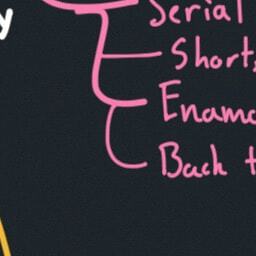 y
Serial
Short,
Enamo
Back t